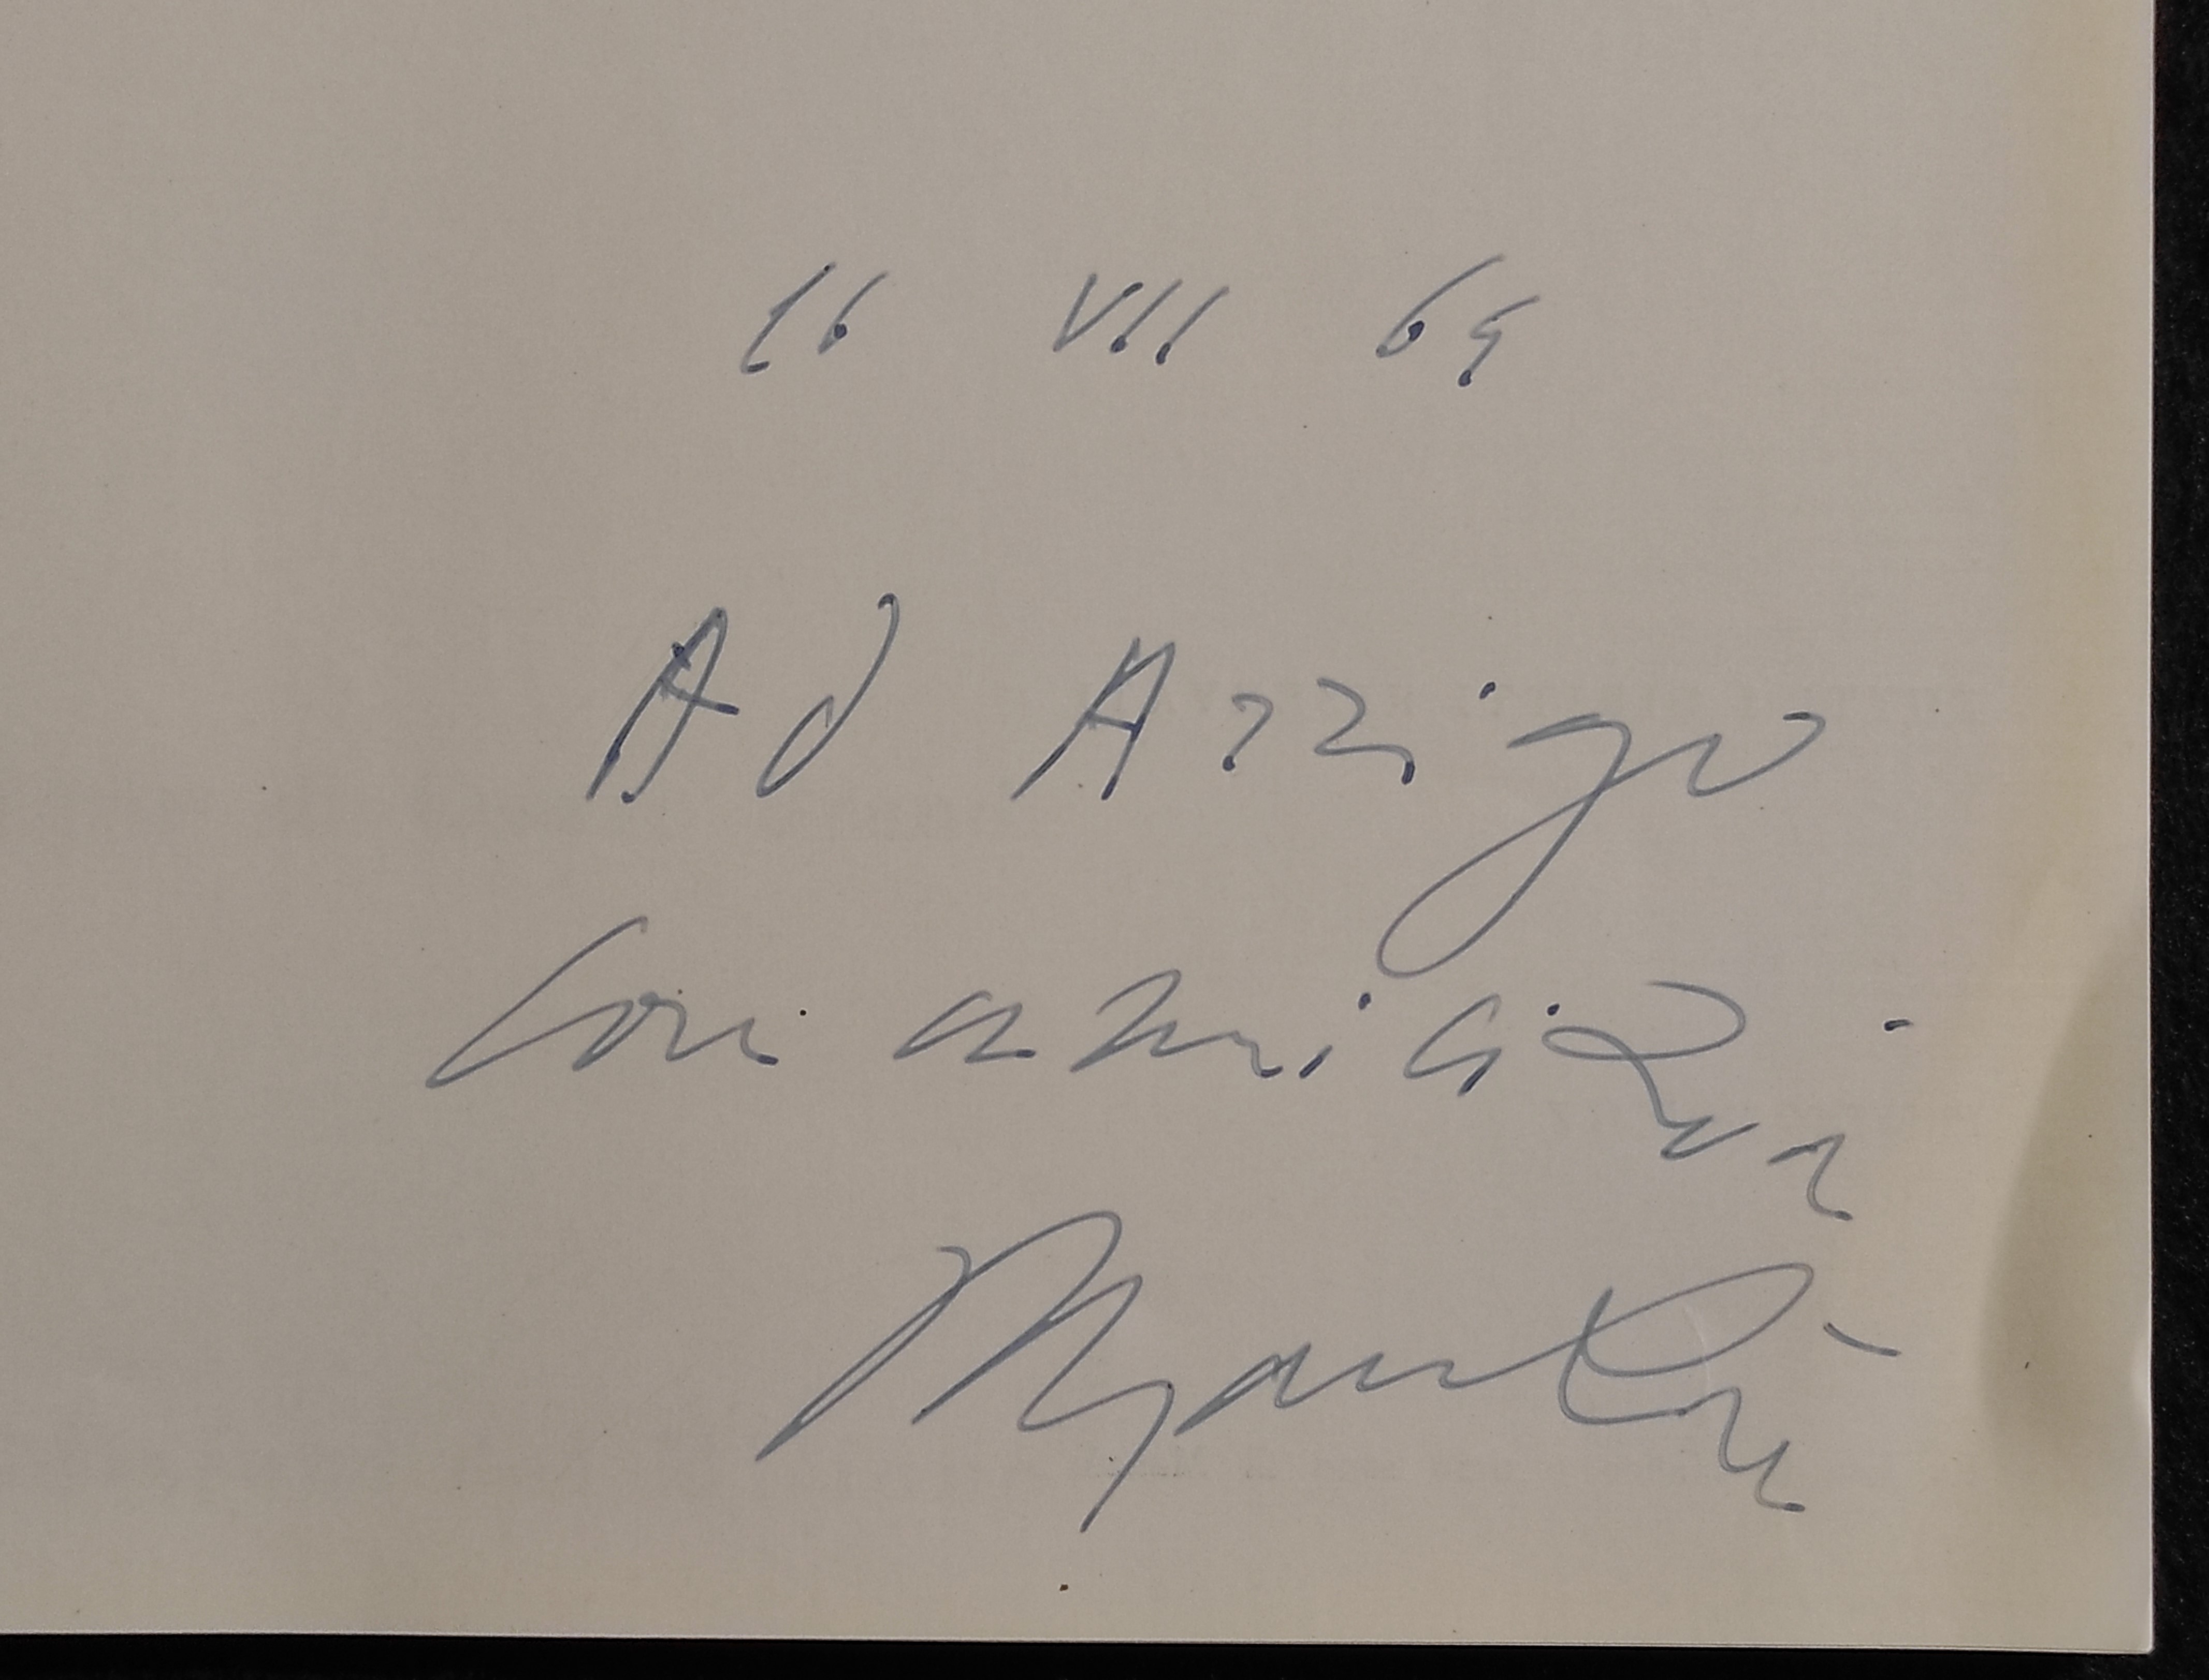 16 VII 69
Ad Arrigo
Con amicizia